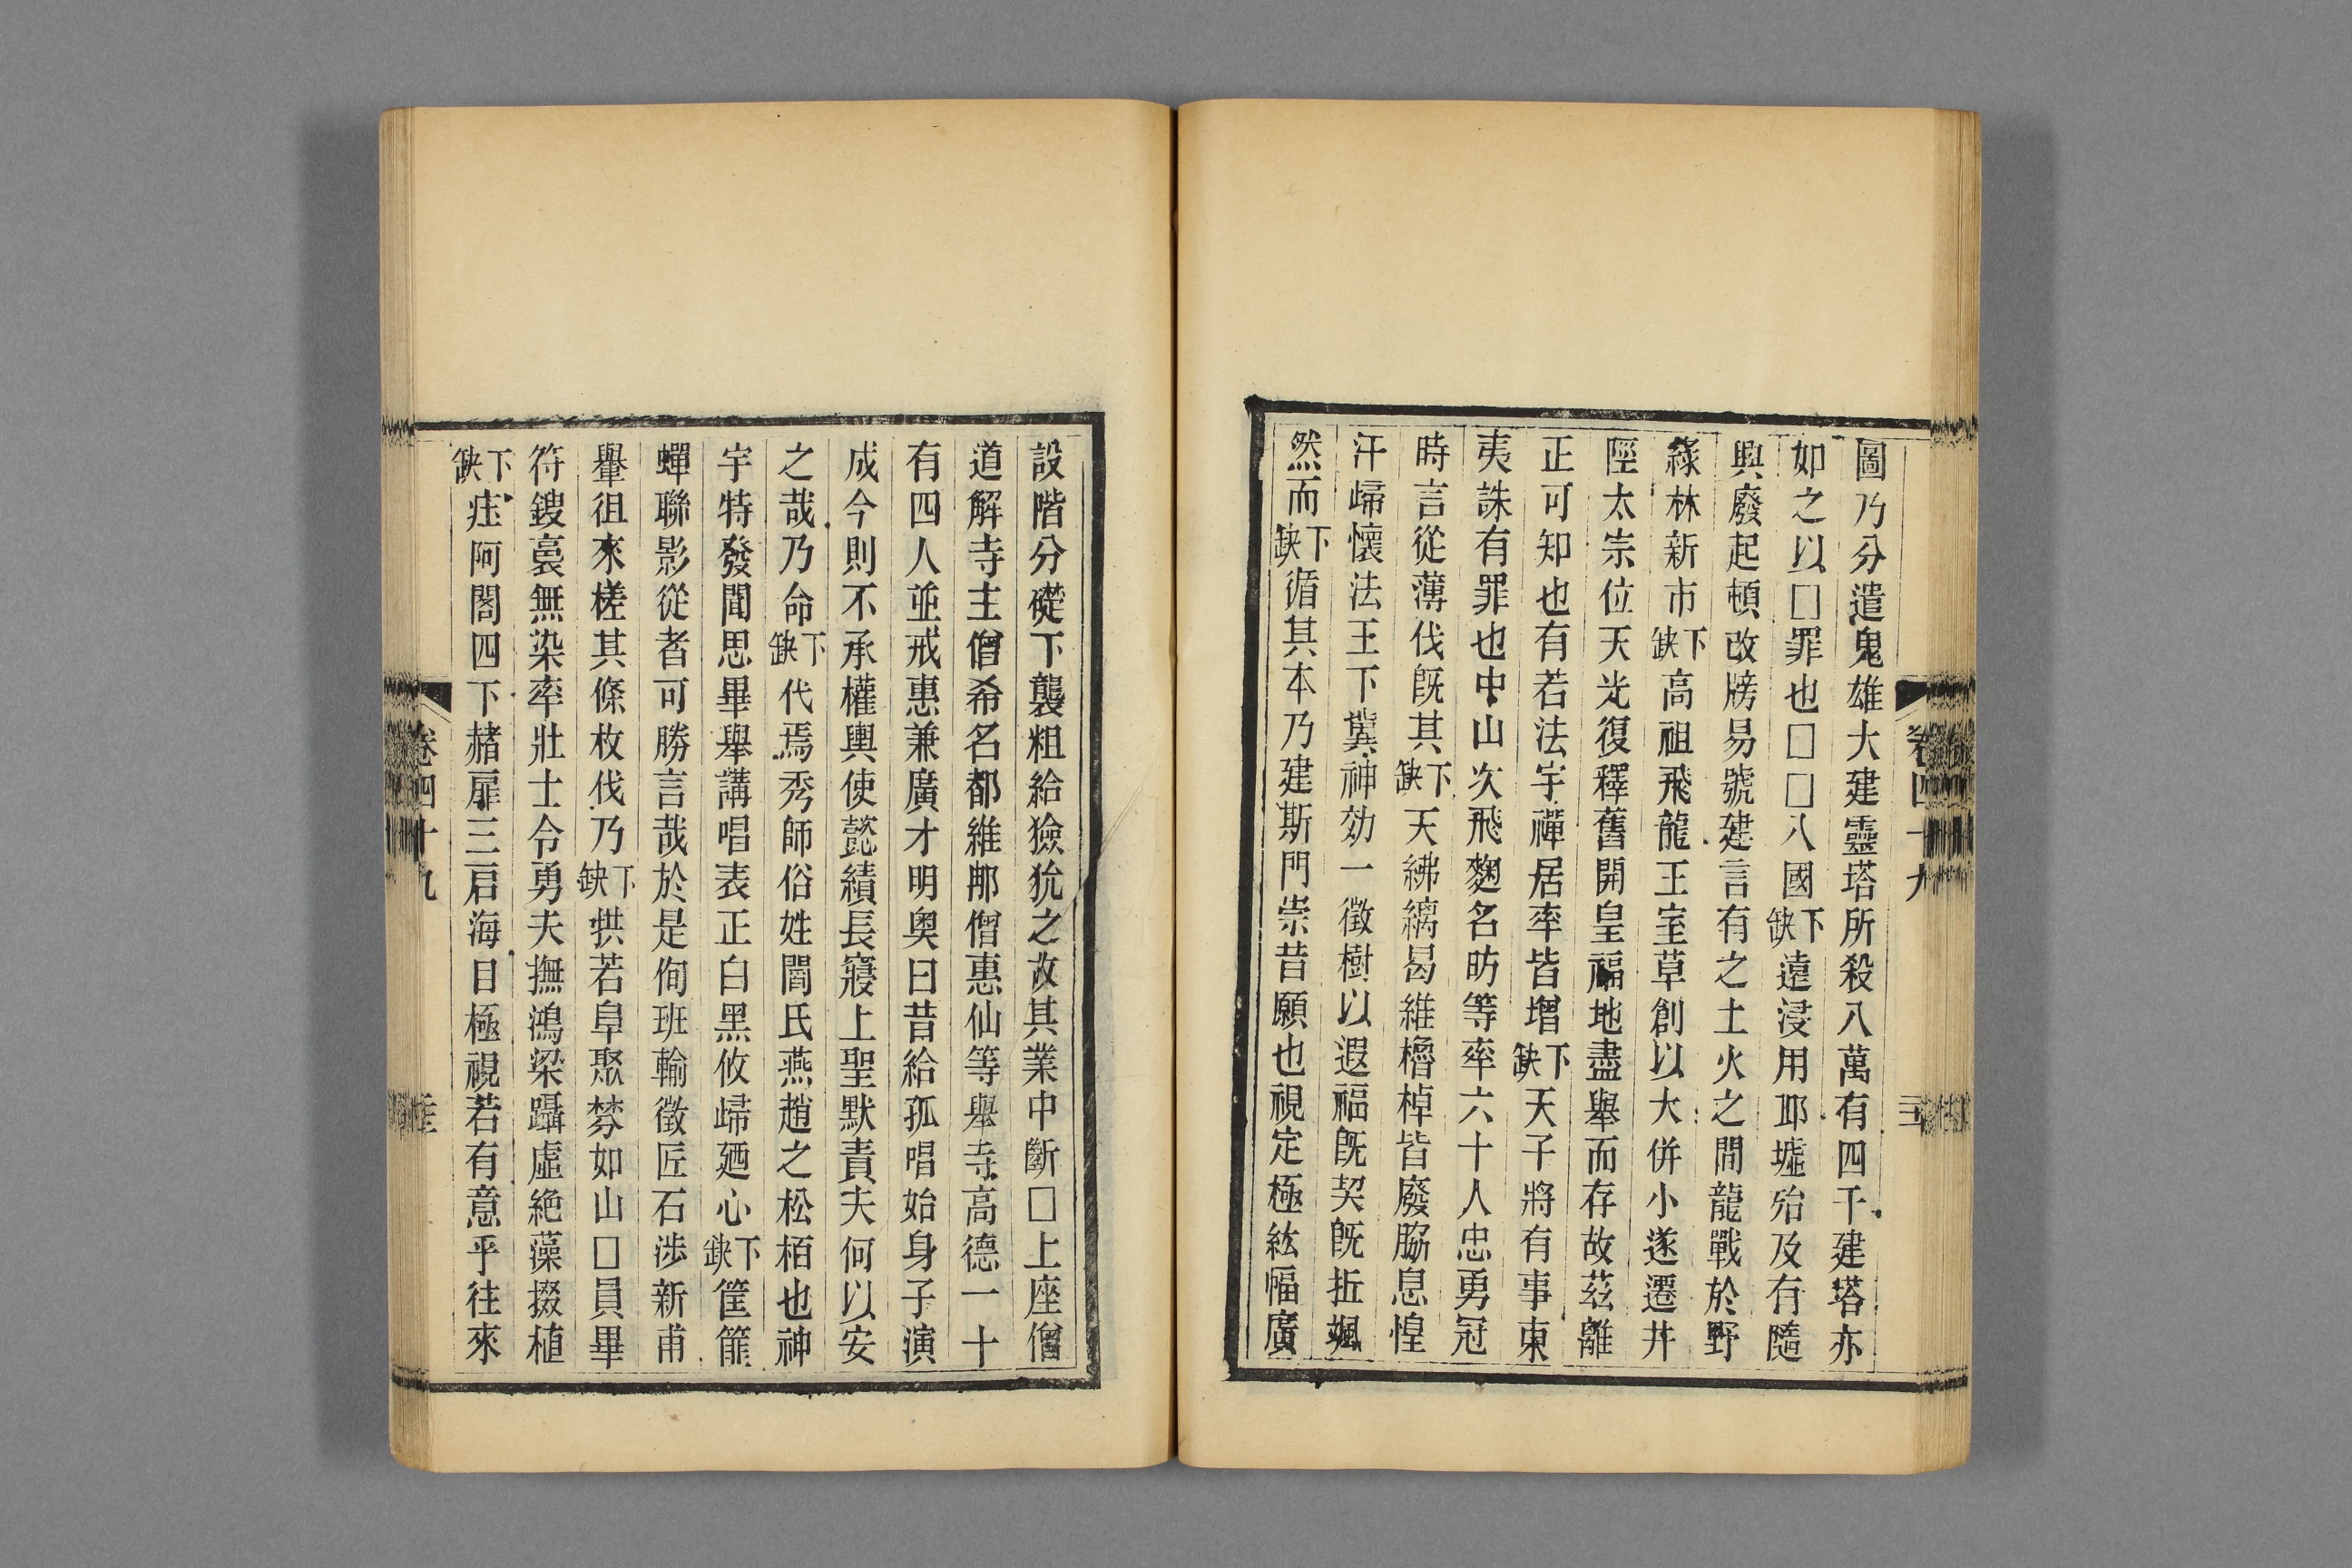 圖乃分遣鬼雄大建靈塔所殺八萬有四千建塔亦
如之以□罪也□□八國下缺遠浸用邛墟殆及有隨
興廢起頓改牓易號建言有之土火之間龍戰於野
綠林新市下缺高祖飛龍王室草創以大併小遂遷井
陘太宗位天光復釋舊開皇福地盡舉而存故茲離
正可知也有若法宇禪居率皆增下缺天子將有事東
夷誅有罪也中山次飛麴名昉等率六十人忠勇冠
時言從薄伐既其下缺天紼縭曷維櫓棹皆廢脇息惶
汗歸懷法王下冀神効一徵樹以遐福既契既折颯
然而下缺循其本乃建斯門崇昔願也視定極紘幅廣
卷四十九
設階分礎下襲粗給獫狁之故其業中斷□上座僧
道解寺主僧希名都維那僧惠仙等舉寺高德一十
有四人並戒惠兼廣才明奧曰昔給孤唱始身子演
成今則不承權輿使懿績長寢上聖默責夫何以安
之哉乃命下缺代焉秀師俗姓閻氏燕趙之松栢也神
宇特發聞思畢舉講唱表正白黑攸歸廼心下缺筐篚
蟬聯影從者可勝言哉於是徇班輸徵匠石涉新甫
轝徂來槎其條枚伐乃下缺拱若阜聚棼如山□員畢
符鍐裛無染率壯士令勇夫撫鴻梁躡虛絶藻掇植
下缺疰阿閣四下赭扉三启海日極視若有意乎往來
卷四十九